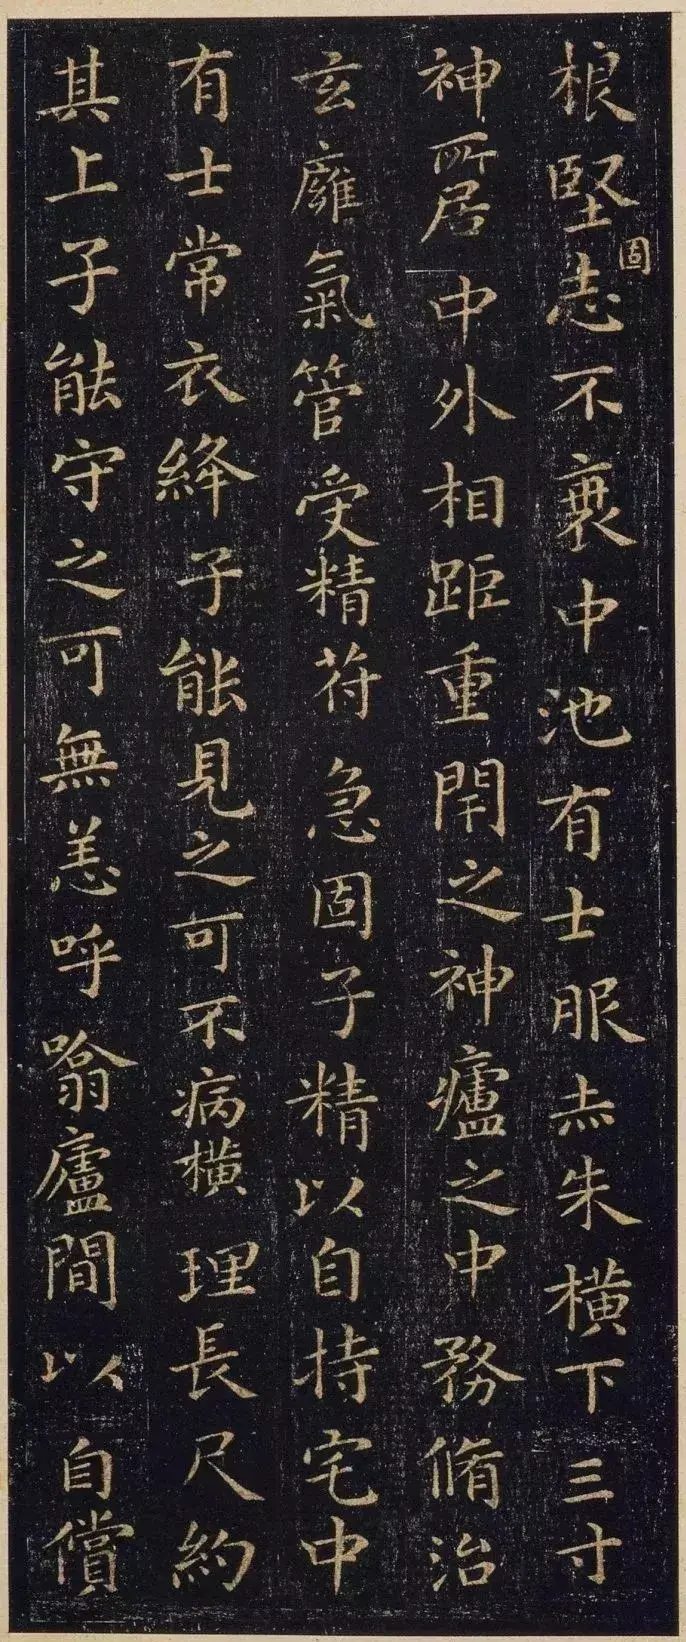 根堅固志不衰中池有士服赤朱橫下三寸
神所居中外相距重閇之神廬之中務脩治
玄癰氣管受精符急固子精以自持宅中
有士常衣絳子能見之可不病橫理長尺約
其上子能守之可無恙呼噏廬間以自償